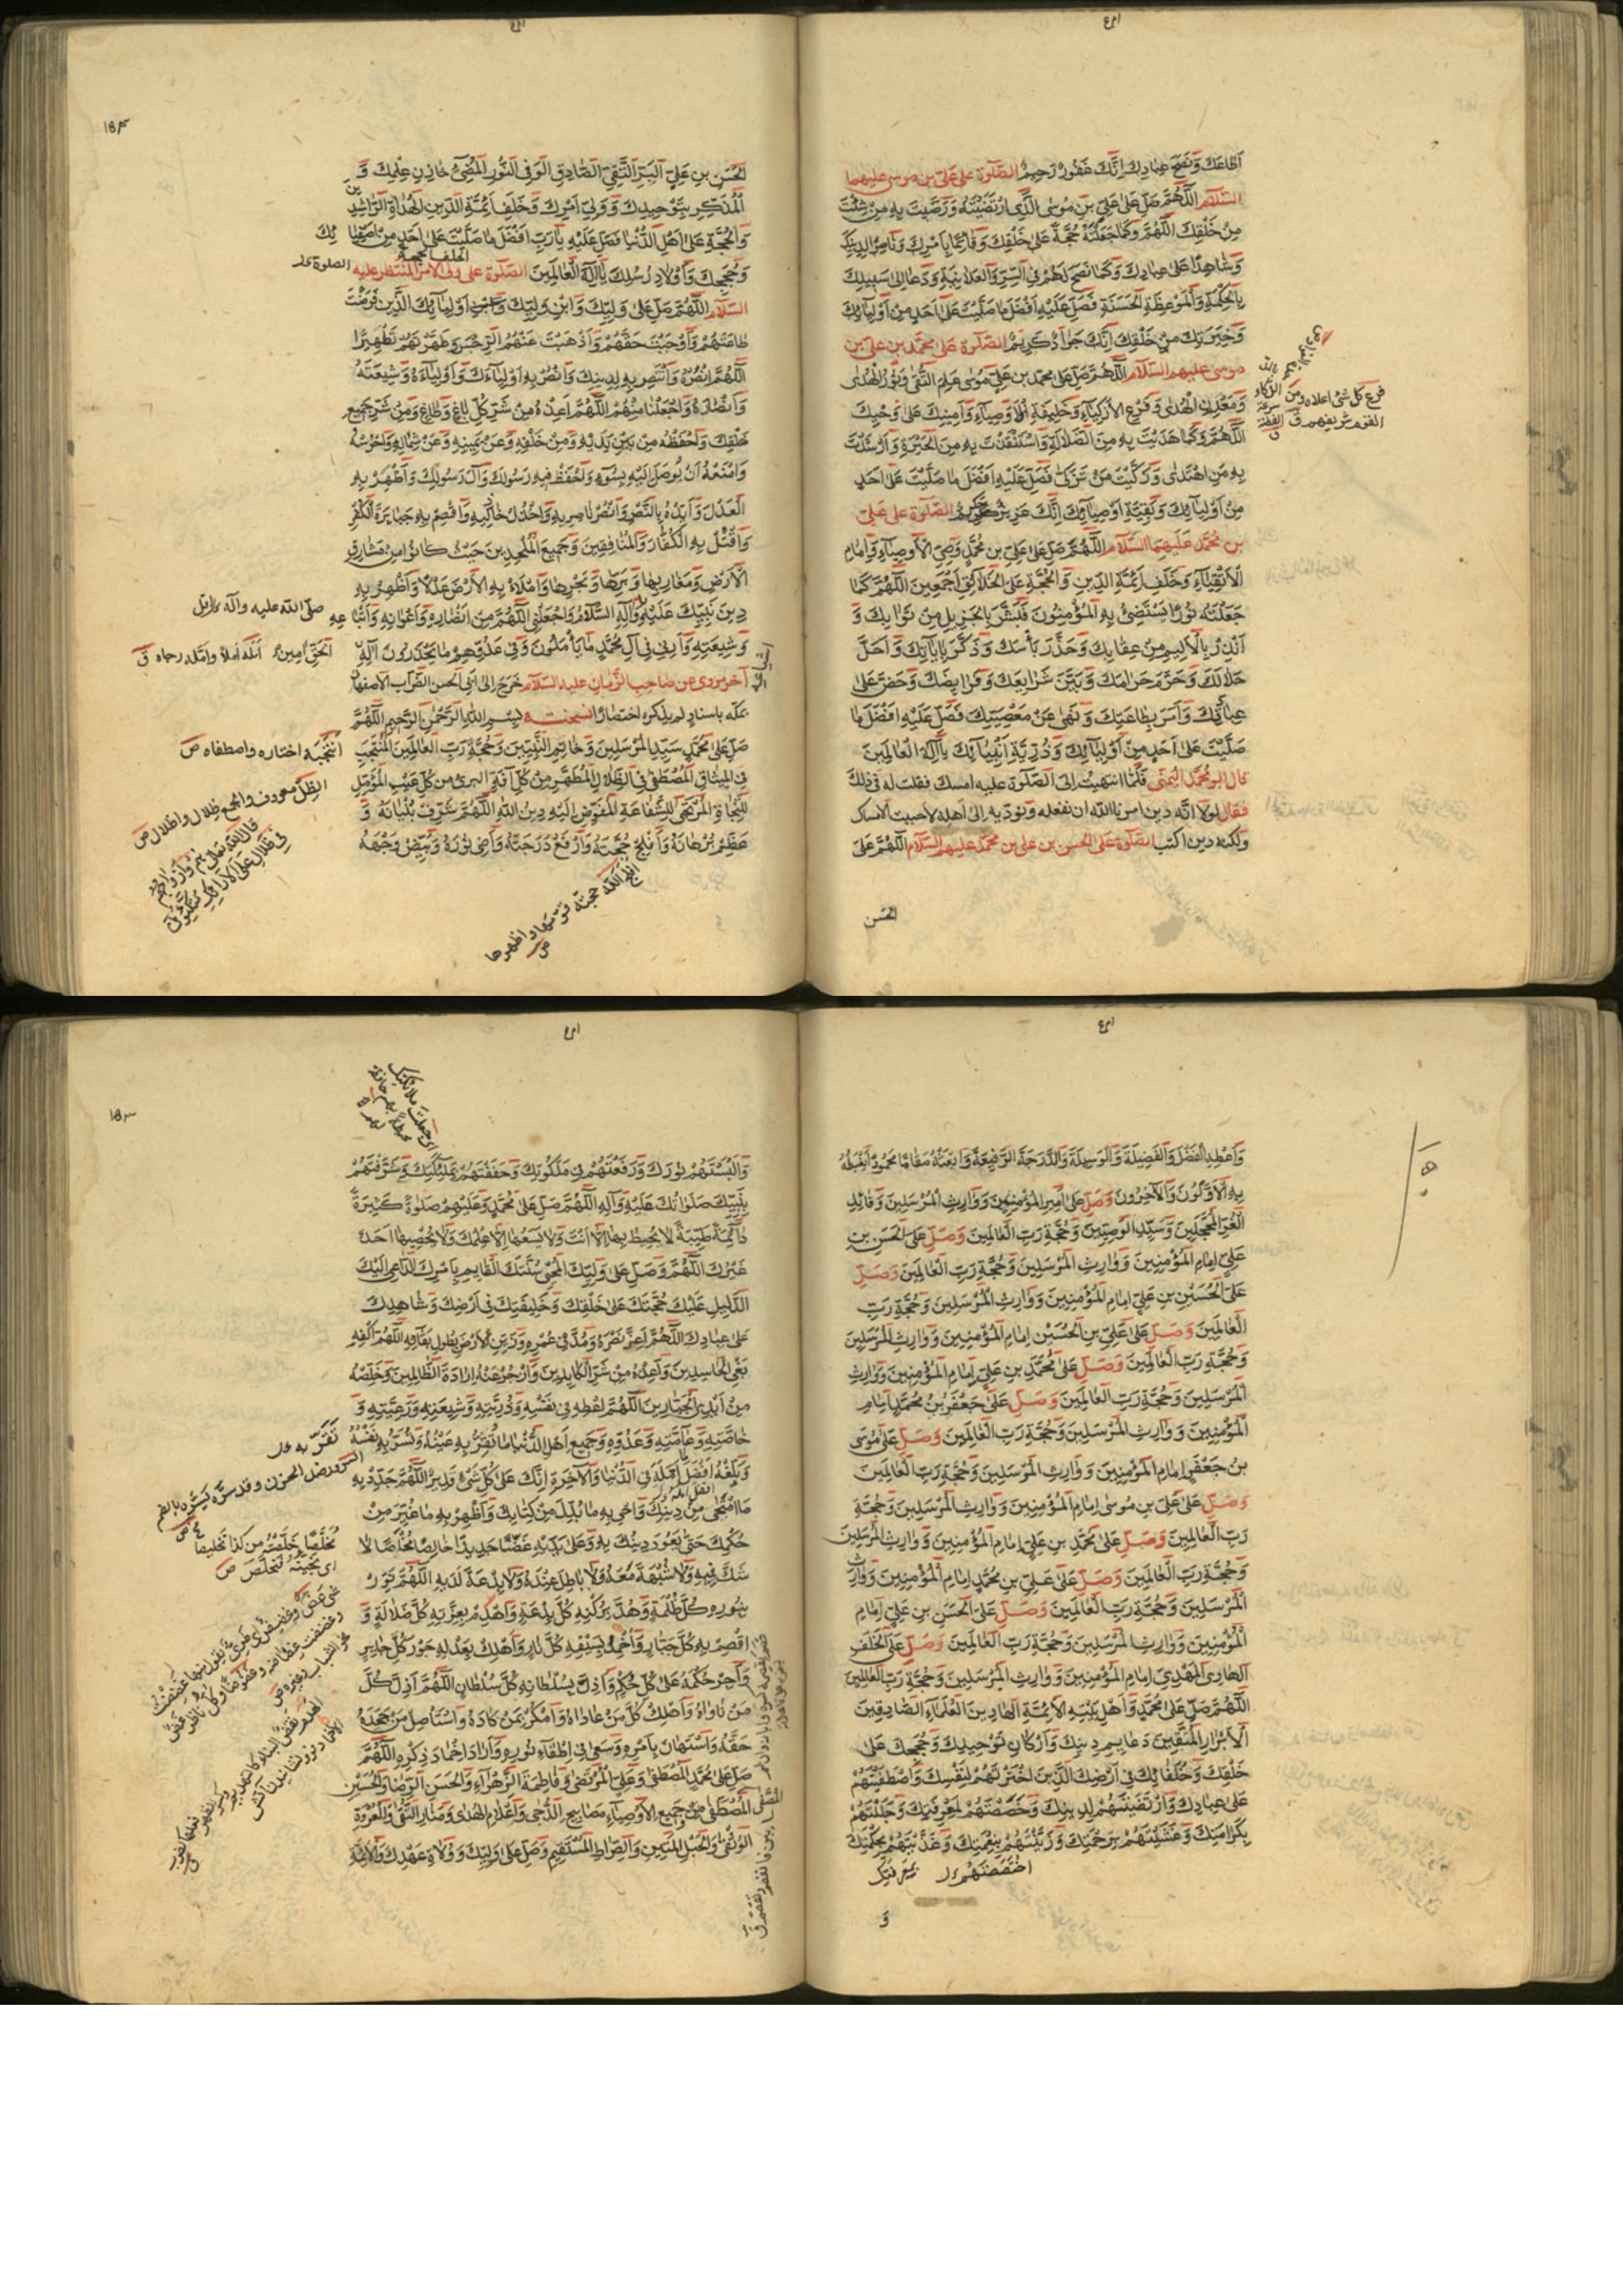 اَطَاعَكَ وَنَصَحَ عِبَادَكَ اِنَّكَ غَفُورٌ رَحِيمٌ الصَّلٰوة على عليّ بن موسى عليهما
السَّلام اَللّٰهُمَّ صَلِّ عَلٰى عَلِيِّ بنِ مُوسَى الَّذِي ارْتَضَيْتَهُ وَرَضَّيْتَ بِهِ مَنْ شِئْتَ
مِنْ خَلْقِكَ اَللّٰهُمَّ وَكَمَا جَعَلْتَهُ حُجَّةً عَلٰى خَلْقِكَ وَقَائِمًا بِاَمْرِكَ وَنَاصِرًا لِدِينِكَ
وَشَاهِدًا عَلٰى عِبَادِكَ وَكَمَا نَصَحَ لَهُمْ فِي السِّرِّ وَالْعَلَانِيَةِ وَدَعَا اِلٰى سَبِيلِكَ
بِالْحِكْمَةِ وَالْمَوْعِظَةِ الْحَسَنَةِ فَصَلِّ عَلَيْهِ اَفْضَلَ مَا صَلَّيْتَ عَلٰى اَحَدٍ مِنْ اَوْلِيَائِكَ
وَخِيَرَتِكَ مِنْ خَلْقِكَ اِنَّكَ جَوَادٌ كَرِيمٌ الصَّلٰوة على محمّد بن عليّ بن
موسى عليهم السّلام اَللّٰهُمَّ صَلِّ عَلٰى محمد بن عليّ بن مُوسٰى عَلَمِ التُّقٰى وَنُورِ الْهُدٰى
وَمَعْدِنِ الْهُدٰى وَفَرْعِ الْاَزْكِيَاءِ وَخَلِيفَةِ الْاَوْصِيَاءِ وَاَمِينِكَ عَلٰى وَحْيِكَ
اَللّٰهُمَّ وَكَمَا هَدَيْتَ بِهِ مِنَ الضَّلَالَةِ وَاسْتَنْقَذْتَ بِهِ مِنَ الْحَيْرَةِ وَاَرْشَدْتَ
بِهِ مَنِ اهْتَدٰى وَزَكَّيْتَ مَنْ تَزَكّٰى فَصَلِّ عَلَيْهِ اَفْضَلَ مَا صَلَّيْتَ عَلٰى اَحَدٍ
مِنْ اَوْلِيَائِكَ وَبَقِيَّةِ اَوْصِيَائِكَ اِنَّكَ عَزِيزٌ حَكِيمٌ الصَّلٰوة على عليّ
بن مُحَمَّد عَلَيْهِمَا السَّلَام اَللّٰهُمَّ صَلِّ عَلٰى عَلِيِّ بن مُحَمَّدٍ وَصِيِّ الْاَوْصِيَاءِ وَاِمَامِ
الْاَتْقِيَاءِ وَخَلَفِ اَئِمَّةِ الدِّينِ وَالْحُجَّةِ عَلَى الْخَلَائِقِ اَجْمَعِينَ اَللّٰهُمَّ كَمَا
جَعَلْتَهُ نُورًا يَسْتَضِيءُ بِهِ الْمُؤْمِنُونَ فَبَشَّرَ بِالْجَزِيلِ مِنْ ثَوَابِكَ وَ
اَنْذَرَ بِالْاَلِيمِ مِنْ عِقَابِكَ وَحَذَّرَ بَأْسَكَ وَذَكَّرَ بِاٰيَاتِكَ وَاَحَلَّ
حَلَالَكَ وَحَرَّمَ حَرَامَكَ وَبَيَّنَ شَرَائِعَكَ وَفَرَائِضَكَ وَحَضَّ عَلٰى
عِبَادَتِكَ وَاَمَرَ بِطَاعَتِكَ وَنَهٰى عَنْ مَعْصِيَتِكَ فَصَلِّ عَلَيْهِ اَفْضَلَ مَا
صَلَّيْتَ عَلٰى اَحَدٍ مِنْ اَوْلِيَائِكَ وَذُرِّيَّةِ اَنْبِيَائِكَ يَا اِلٰهَ الْعَالَمِينَ
قال ابو محمّد اليمني فَلَمَّا انتهيتُ اِلى الصَّلٰوة عليه امسك فقلت له في ذلك
فقال لولا انّه دين امرنا الله ان نفعله ونؤدّيه الى اهله لاحببت الامساك
ولكنه دين اكتب الصَّلٰوة على الحسن بن علي بن محمّد عليهم السّلام اَللّٰهُمَّ صَلِّ عَلَى
الحَسَن
فرع كل شئ اعلاه ومن
القوم شريفهم ق
الْحَسَنِ بنِ عَلِيٍّ الْبَرِّ التَّقِيِّ الصَّادِقِ الْوَفِيِّ النُّورِ الْمُضِيءِ خَازِنِ عِلْمِكَ وَ
الْمُذَكِّرِ بِتَوْحِيدِكَ وَوَلِيِّ اَمْرِكَ وَخَلَفِ اَئِمَّةِ الدِّينِ الْهُدَاةِ الرَّاشِدِينَ
وَالْحُجَّةِ عَلٰى اَهْلِ الدُّنْيَا فَصَلِّ عَلَيْهِ يَا رَبِّ اَفْضَلَ مَا صَلَّيْتَ عَلٰى اَحَدٍ مِنْ اَصْفِيَائِكَ
وَحُجَجِكَ وَاَوْلَادِ رُسُلِكَ يَا اِلٰهَ الْعَالَمِينَ الصَّلٰوة على ولى الامر المنتظر عليه
السَّلام اَللّٰهُمَّ صَلِّ عَلٰى وَلِيِّكَ وَابْنِ وَلِيِّكَ وَابْنِ اَوْلِيَائِكَ الَّذِينَ فَرَضْتَ
طَاعَتَهُمْ وَاَوْجَبْتَ حَقَّهُمْ وَاَذْهَبْتَ عَنْهُمُ الرِّجْسَ وَطَهَّرْتَهُمْ تَطْهِيرًا
اَللّٰهُمَّ انْصُرْهُ وَانْتَصِرْ بِهِ لِدِينِكَ وَانْصُرْ بِهِ اَوْلِيَاءَكَ وَاَوْلِيَاءَهُ وَشِيعَتَهُ
وَاَنْصَارَهُ وَاجْعَلْنَا مِنْهُمْ اَللّٰهُمَّ اَعِذْهُ مِنْ شَرِّ كُلِّ بَاغٍ وَطَاغٍ وَمِنْ شَرِّ جَمِيعِ
خَلْقِكَ وَاحْفَظْهُ مِنْ بَيْنِ يَدَيْهِ وَمِنْ خَلْفِهِ وَعَنْ يَمِينِهِ وَعَنْ شِمَالِهِ وَاحْرُسْهُ
وَامْنَعْهُ اَنْ يُوصَلَ اِلَيْهِ بِسُوءٍ وَاحْفَظْ فِيهِ رَسُولَكَ وَاٰلَ رَسُولِكَ وَاَظْهِرْ بِهِ
الْعَدْلَ وَاَيِّدْهُ بِالنَّصْرِ وَانْصُرْ نَاصِرِيهِ وَاخْذُلْ خَاذِلِيهِ وَاقْصِمْ بِهِ جَبَابِرَةَ الْكُفْرِ
وَاقْتُلْ بِهِ الْكُفَّارَ وَالْمُنَافِقِينَ وَجَمِيعَ الْمُلْحِدِينَ حَيْثُ كَانُوا مِنْ مَشَارِقِ
الْاَرْضِ وَمَغَارِبِهَا وَبَرِّهَا وَبَحْرِهَا وَامْلَأْ بِهِ الْاَرْضَ عَدْلًا وَاَظْهِرْ بِهِ
دِينَ نَبِيِّكَ عَلَيْهِ وَاٰلِهِ السَّلَامُ وَاجْعَلْنِي اَللّٰهُمَّ مِنْ اَنْصَارِهِ وَاَعْوَانِهِ وَاَتْبَاعِهِ
وَشِيعَتِهِ وَاَرِنِي فِي اٰلِ مُحَمَّدٍ مَا يَأْمُلُونَ وَفِي عَدُوِّهِمْ مَا يَحْذَرُونَ اِلٰهَ
اٰخر مروى عن صاحب الزّمان عليه السّلام خَرَجَ الى ابى الحسن الضّراب الاصفهانى
بمكّة باسنادٍ لم يذكره اختصارًا نسخته بِسْمِ اللّٰهِ الرَّحْمٰنِ الرَّحِيمِ اَللّٰهُمَّ
صَلِّ عَلٰى مُحَمَّدٍ سَيِّدِ الْمُرْسَلِينَ وَخَاتَمِ النَّبِيِّينَ وَحُجَّةِ رَبِّ الْعَالَمِينَ الْمُنْتَجَبِ
فِي الْمِيثَاقِ الْمُصْطَفٰى فِي الظِّلَالِ الْمُطَهَّرِ مِنْ كُلِّ اٰفَةٍ الْبَرِيءِ مِنْ كُلِّ عَيْبٍ الْمُؤَمَّلِ
لِلنَّجَاةِ الْمُرْتَجٰى لِلشَّفَاعَةِ الْمُفَوَّضِ اِلَيْهِ دِينُ اللّٰهِ اَللّٰهُمَّ شَرِّفْ بُنْيَانَهُ وَ
عَظِّمْ بُرْهَانَهُ وَاَفْلِجْ حُجَّتَهُ وَارْفَعْ دَرَجَتَهُ وَاَضِئْ نُورَهُ وَبَيِّضْ وَجْهَهُ
صلّى الله عليه وآله
انْتَجَبَهُ اختاره واصطفاه ص
الظلّ معروف والجمع ظلال واظلال ص
قال الله تعالى هم وازواجهم
في ظلال على الارائك متكئون
افلج الله حجته قوّمها واظهرها
وَاَعْطِهِ الْفَضْلَ وَالْفَضِيلَةَ وَالْوَسِيلَةَ وَالدَّرَجَةَ الرَّفِيعَةَ وَابْعَثْهُ مَقَامًا مَحْمُودًا يَغْبِطُهُ
بِهِ الْاَوَّلُونَ وَالْاٰخِرُونَ وَصَلِّ عَلٰى اَمِيرِ الْمُؤْمِنِينَ وَوَارِثِ الْمُرْسَلِينَ وَقَائِدِ
الْغُرِّ الْمُحَجَّلِينَ وَسَيِّدِ الْوَصِيِّينَ وَحُجَّةِ رَبِّ الْعَالَمِينَ وَصَلِّ عَلَى الْحَسَنِ بنِ
عَلِيٍّ اِمَامِ الْمُؤْمِنِينَ وَوَارِثِ الْمُرْسَلِينَ وَحُجَّةِ رَبِّ الْعَالَمِينَ وَصَلِّ
عَلَى الْحُسَيْنِ بنِ عَلِيٍّ اِمَامِ الْمُؤْمِنِينَ وَوَارِثِ الْمُرْسَلِينَ وَحُجَّةِ رَبِّ
الْعَالَمِينَ وَصَلِّ عَلٰى عَلِيِّ بنِ الْحُسَيْنِ اِمَامِ الْمُؤْمِنِينَ وَوَارِثِ الْمُرْسَلِينَ
وَحُجَّةِ رَبِّ الْعَالَمِينَ وَصَلِّ عَلٰى مُحَمَّدِ بنِ عَلِيٍّ اِمَامِ الْمُؤْمِنِينَ وَوَارِثِ
الْمُرْسَلِينَ وَحُجَّةِ رَبِّ الْعَالَمِينَ وَصَلِّ عَلٰى جَعْفَرِ بنِ مُحَمَّدٍ اِمَامِ
الْمُؤْمِنِينَ وَوَارِثِ الْمُرْسَلِينَ وَحُجَّةِ رَبِّ الْعَالَمِينَ وَصَلِّ عَلٰى مُوسَى
بنِ جَعْفَرٍ اِمَامِ الْمُؤْمِنِينَ وَوَارِثِ الْمُرْسَلِينَ وَحُجَّةِ رَبِّ الْعَالَمِينَ
وَصَلِّ عَلٰى عَلِيِّ بنِ مُوسٰى اِمَامِ الْمُؤْمِنِينَ وَوَارِثِ الْمُرْسَلِينَ وَحُجَّةِ
رَبِّ الْعَالَمِينَ وَصَلِّ عَلٰى مُحَمَّدِ بنِ عَلِيٍّ اِمَامِ الْمُؤْمِنِينَ وَوَارِثِ الْمُرْسَلِينَ
وَحُجَّةِ رَبِّ الْعَالَمِينَ وَصَلِّ عَلٰى عَلِيِّ بنِ مُحَمَّدٍ اِمَامِ الْمُؤْمِنِينَ وَوَارِثِ
الْمُرْسَلِينَ وَحُجَّةِ رَبِّ الْعَالَمِينَ وَصَلِّ عَلَى الْحَسَنِ بنِ عَلِيٍّ اِمَامِ
الْمُؤْمِنِينَ وَوَارِثِ الْمُرْسَلِينَ وَحُجَّةِ رَبِّ الْعَالَمِينَ وَصَلِّ عَلَى الْخَلَفِ
الْهَادِي الْمَهْدِيِّ اِمَامِ الْمُؤْمِنِينَ وَوَارِثِ الْمُرْسَلِينَ وَحُجَّةِ رَبِّ الْعَالَمِينَ
اَللّٰهُمَّ صَلِّ عَلٰى مُحَمَّدٍ وَاَهْلِ بَيْتِهِ الْاَئِمَّةِ الْهَادِينَ الْعُلَمَاءِ الصَّادِقِينَ
الْاَبْرَارِ الْمُتَّقِينَ دَعَائِمِ دِينِكَ وَاَرْكَانِ تَوْحِيدِكَ وَحُجَجِكَ عَلٰى
خَلْقِكَ وَخُلَفَائِكَ فِي اَرْضِكَ الَّذِينَ اخْتَرْتَهُمْ لِنَفْسِكَ وَاصْطَفَيْتَهُمْ
عَلٰى عِبَادِكَ وَارْتَضَيْتَهُمْ لِدِينِكَ وَخَصَصْتَهُمْ بِمَعْرِفَتِكَ وَجَلَّلْتَهُمْ
بِكَرَامَتِكَ وَغَشَّيْتَهُمْ بِرَحْمَتِكَ وَرَبَّيْتَهُمْ بِنِعْمَتِكَ وَغَذَّيْتَهُمْ بِحِكْمَتِكَ
وَ
وَاَلْبَسْتَهُمْ نُورَكَ وَرَفَعْتَهُمْ فِي مَلَكُوتِكَ وَحَفَفْتَهُمْ بِمَلٰئِكَتِكَ وَشَرَّفْتَهُمْ
بِنَبِيِّكَ صَلَوَاتُكَ عَلَيْهِ وَاٰلِهِ اَللّٰهُمَّ صَلِّ عَلٰى مُحَمَّدٍ وَعَلَيْهِمْ صَلٰوةً كَثِيرَةً
دَائِمَةً طَيِّبَةً لَا يُحِيطُ بِهَا اِلَّا اَنْتَ وَلَا يَسَعُهَا اِلَّا عِلْمُكَ وَلَا يُحْصِيهَا اَحَدٌ
غَيْرُكَ اَللّٰهُمَّ وَصَلِّ عَلٰى وَلِيِّكَ الْمُحْيِي سُنَّتَكَ الْقَائِمِ بِاَمْرِكَ الدَّاعِي اِلَيْكَ
الدَّلِيلِ عَلَيْكَ حُجَّتِكَ عَلٰى خَلْقِكَ وَخَلِيفَتِكَ فِي اَرْضِكَ وَشَاهِدِكَ
عَلٰى عِبَادِكَ اَللّٰهُمَّ اَعِزَّ نَصْرَهُ وَمُدَّ فِي عُمْرِهِ وَزَيِّنِ الْاَرْضَ بِطُولِ بَقَائِهِ اَللّٰهُمَّ اكْفِهِ
بَغْيَ الْحَاسِدِينَ وَاَعِذْهُ مِنْ شَرِّ الْكَائِدِينَ وَازْجُرْ عَنْهُ اِرَادَةَ الظَّالِمِينَ وَخَلِّصْهُ
مِنْ اَيْدِي الْجَبَّارِينَ اَللّٰهُمَّ اَعْطِهِ فِي نَفْسِهِ وَذُرِّيَّتِهِ وَشِيعَتِهِ وَرَعِيَّتِهِ وَ
خَاصَّتِهِ وَعَامَّتِهِ وَعَدُوِّهِ وَجَمِيعِ اَهْلِ الدُّنْيَا مَا تُقِرُّ بِهِ عَيْنَهُ وَتَسُرُّ بِهِ نَفْسَهُ
وَبَلِّغْهُ اَفْضَلَ اَمَلِهِ فِي الدُّنْيَا وَالْاٰخِرَةِ اِنَّكَ عَلٰى كُلِّ شَيْءٍ قَدِيرٌ اَللّٰهُمَّ جَدِّدْ بِهِ
مَا امْتَحٰى مِنْ دِينِكَ وَاَحْيِ بِهِ مَا بُدِّلَ مِنْ كِتَابِكَ وَاَظْهِرْ بِهِ مَا غُيِّرَ مِنْ
حُكْمِكَ حَتّٰى يَعُودَ دِينُكَ بِهِ وَعَلٰى يَدَيْهِ غَضًّا جَدِيدًا خَالِصًا مُخْلَصًا لَا
شَكَّ فِيهِ وَلَا شُبْهَةَ مَعَهُ وَلَا بَاطِلَ عِنْدَهُ وَلَا بِدْعَةَ لَدَيْهِ اَللّٰهُمَّ نَوِّرْ
بِنُورِهِ كُلَّ ظُلْمَةٍ وَهُدَّ بِرُكْنِهِ كُلَّ بِدْعَةٍ وَاهْدِمْ بِعِزَّتِهِ كُلَّ ضَلَالَةٍ وَ
اقْصِمْ بِهِ كُلَّ جَبَّارٍ وَاَخْمِدْ بِسَيْفِهِ كُلَّ نَارٍ وَاَهْلِكْ بِعَدْلِهِ جَوْرَ كُلِّ جَائِرٍ
وَاَجْرِ حُكْمَهُ عَلٰى كُلِّ حُكْمٍ وَاَذِلَّ بِسُلْطَانِهِ كُلَّ سُلْطَانٍ اَللّٰهُمَّ اَذِلَّ كُلَّ
مَنْ نَاوَاهُ وَاَهْلِكْ كُلَّ مَنْ عَادَاهُ وَامْكُرْ بِمَنْ كَادَهُ وَاسْتَأْصِلْ مَنْ جَحَدَهُ
حَقَّهُ وَاسْتَهَانَ بِاَمْرِهِ وَسَعٰى فِي اِطْفَاءِ نُورِهِ وَاَرَادَ اِخْمَادَ ذِكْرِهِ اَللّٰهُمَّ
صَلِّ عَلٰى مُحَمَّدٍ الْمُصْطَفٰى وَعَلِيٍّ الْمُرْتَضٰى وَفَاطِمَةَ الزَّهْرَاءِ وَالْحَسَنِ الرِّضَا وَالْحُسَيْنِ
الْمُصْطَفٰى وَجَمِيعِ الْاَوْصِيَاءِ مَصَابِيحِ الدُّجٰى وَاَعْلَامِ الْهُدٰى وَمَنَارِ التُّقٰى وَالْعُرْوَةِ
الْوُثْقٰى وَالْحَبْلِ الْمَتِينِ وَالصِّرَاطِ الْمُسْتَقِيمِ وَصَلِّ عَلٰى وَلِيِّكَ وَوُلَاةِ عَهْدِكَ وَالْاَئِمَّةِ